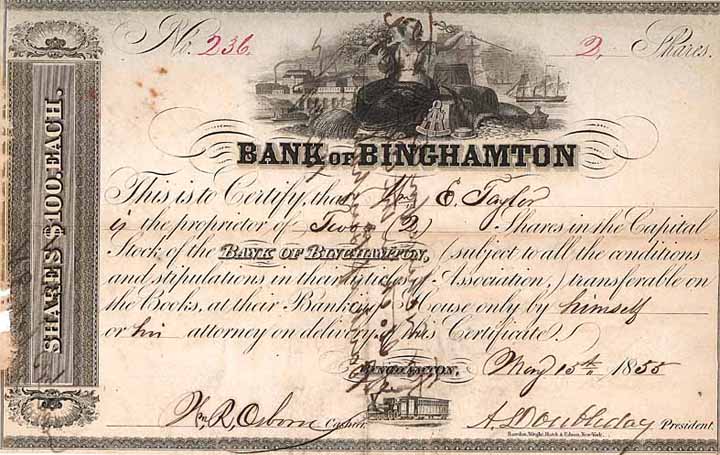 No. 236. 2, Shares.
BANK OF BINGHAMTON
This is to Certify, that Wm E. Taylor
is the proprietor of Two (2) Shares in the Capital
Stock of the BANK OF BINGHAMTON, (subject to all the conditions
and stipulations in their Articles of Association,) transferable on
the Books, at their Banking House only by himself
or his attorney on delivery of this Certificate.
BINGHAMTON, May 15th 1855
Wm R. Osborn Cashier. A. Doubleday President.
Rawdon, Wright, Hatch & Edson, New-York.
SHARES $100. EACH.